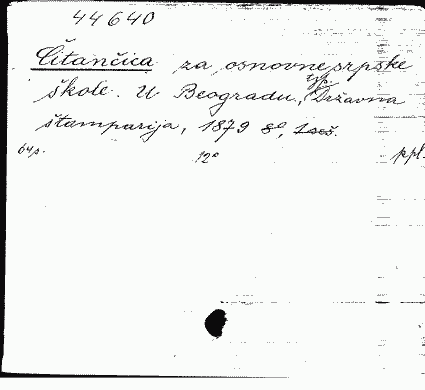 44640
Čitančica za osnovne srpske
škole. U Beogradu, typ. Državna
štamparija, 1879 8°, 1 seš.
64 p. 12° ppl.